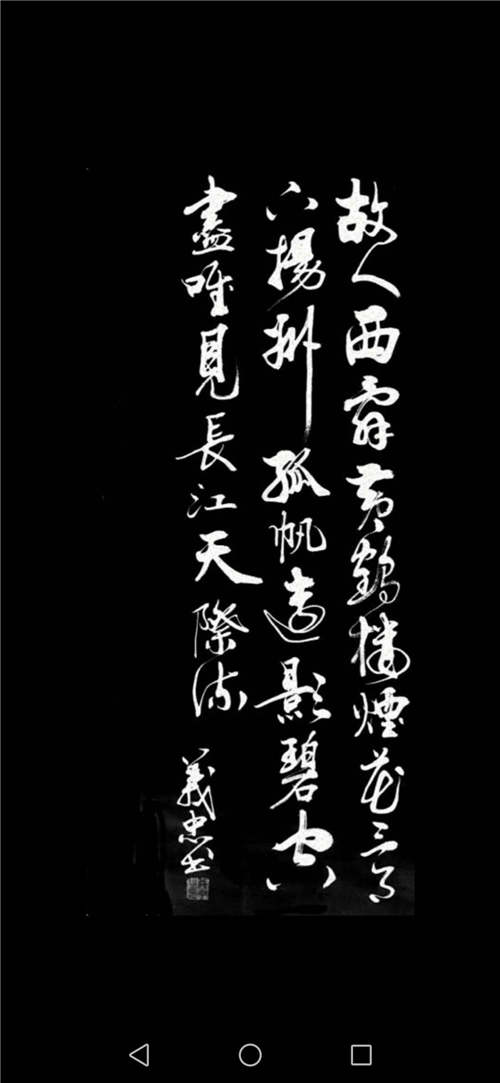 故人西辭黃鶴樓煙花三月
下揚州孤帆遠影碧空
盡唯見長江天際流
義忠書